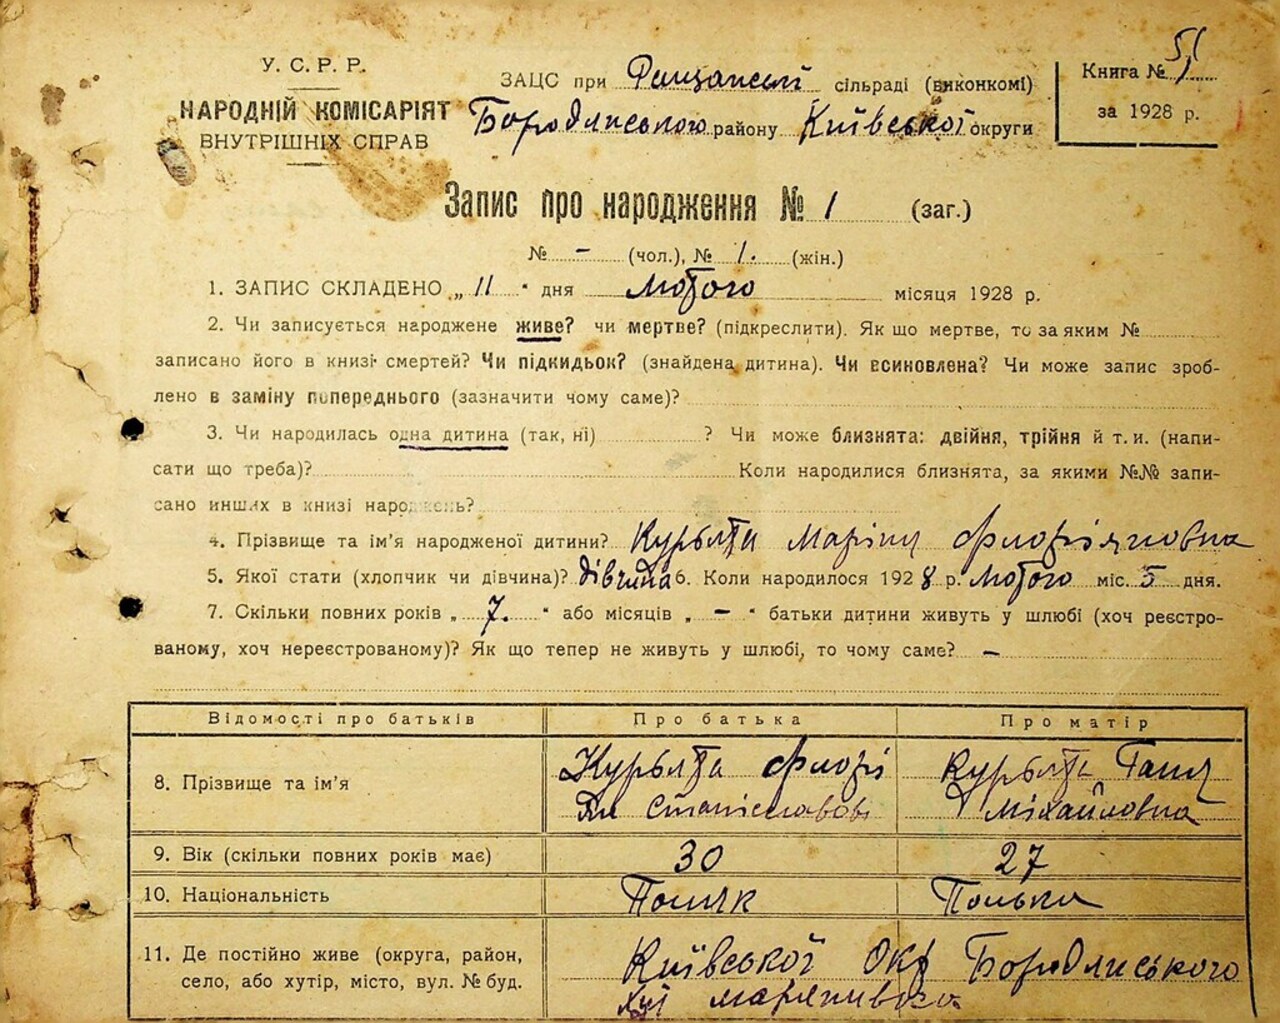 У. С. Р. Р.
НАРОДНІЙ КОМІСАРІЯТ
ВНУТРІШНІХ СПРАВ
ЗАЦС при сільраді (виконкомі)
Бородянського району Київської округи
Книга № 51
за 1928 р.
Запис про народження № 1 (заг.)
№ – (чол.), № 1. (жін.)
1. ЗАПИС СКЛАДЕНО „ 11 " дня Лютого місяця 1928 р.
2. Чи записується народжене живе? чи мертве? (підкреслити). Як що мертве, то за яким №
записано його в книзі смертей? Чи підкидьок? (знайдена дитина). Чи всиновлена? Чи може запис зроб-
лено в заміну попереднього (зазначити чому саме)?
3. Чи народилась одна дитина (так, ні) ? Чи може близнята: двійня, трійня й т. и. (напи-
сати що треба)? Коли народилися близнята, за якими №№ запи-
сано инших в книзі народжень?
4. Прізвище та ім'я народженої дитини? Курьята Марія Флоріяновна
5. Якої стати (хлопчик чи дівчина)? дівчина 6. Коли народилося 1928 р. Лютого міс. 5 дня.
7. Скільки повних років „ 7. " або місяців „ – " батьки дитини живуть у шлюбі (хоч реєстро-
ваному, хоч нереєстрованому)? Як що тепер не живуть у шлюбі, то чому саме? –
Відомості про батьків Про батька Про матір
8. Прізвище та ім'я Курьята Флорі Курьята Ганя
ян Станіславов Міхайловна
9. Вік (скільки повних років має) 30 27
10. Національність Поляк Полька
11. Де постійно живе (округа, район,
село, або хутір, місто, вул. № буд.
Київської Окр Бородянського